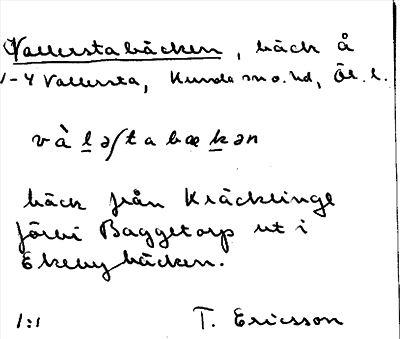 Vallerstabäcken, bäck å
1-4 Vallersta, Kumla sn o. hd, Ök. l.
và l̲əʃta bæk̲ən
bäck från Kräcklinge
förbi Baggetorp ut i
Ekebybäcken.
1:1 T. Ericsson